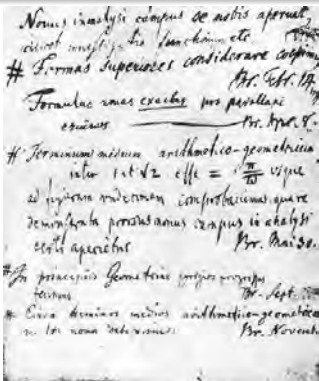 Novus in analysi campus se nobis aperuit,
scilicet investigatio functionum etc.
# Formas superiores considerare coepimus
Br. Febr. 14
Formulas novas exactas pro parallaxi
eruimus Br. Apr. 8.
# Terminum medium arithmetico-geometricum
inter 1 et √2 esse = π/ω usque
ad figuram undecimam comprobavimus, quare
demonstrata prorsus novus campus in analysi
certo aperietur Br. Mai. 30.
# In principiis Geometriae egregios progressus
fecimus Br. Sept.
# Circa terminos medios arithmetico-geometricos
multa nova deteximus. Br. Novemb